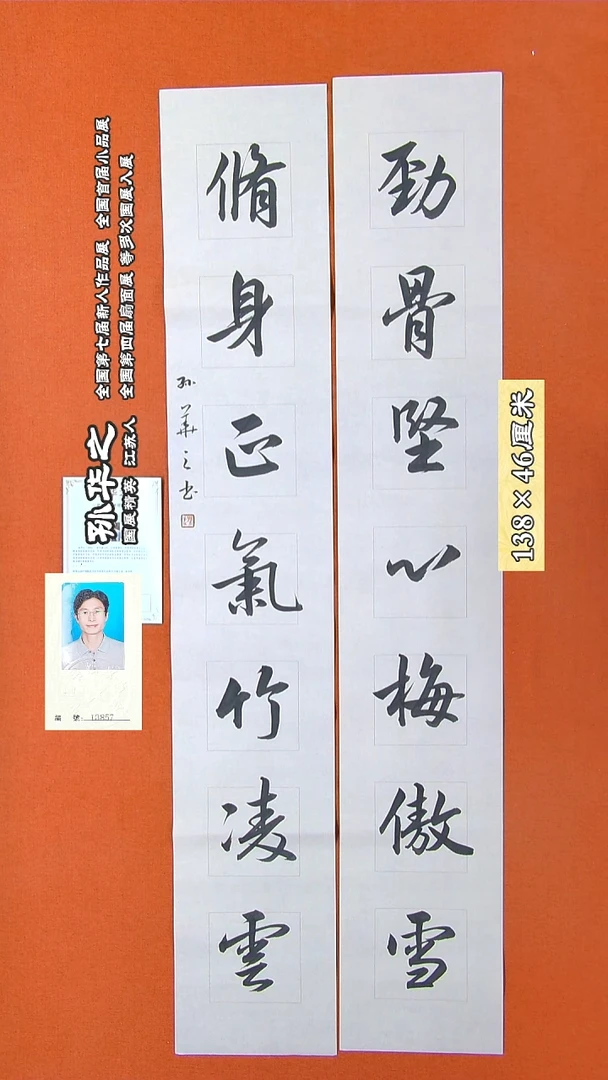 勁骨堅心梅傲雪
脩身正氣竹凌雲
孙華之书
138×46厘米
孙华之
国展精英 江苏人
全国第七届新人作品展 全国首届小品展
全国第四届扇面展 等多次国展入展
編 號：13857